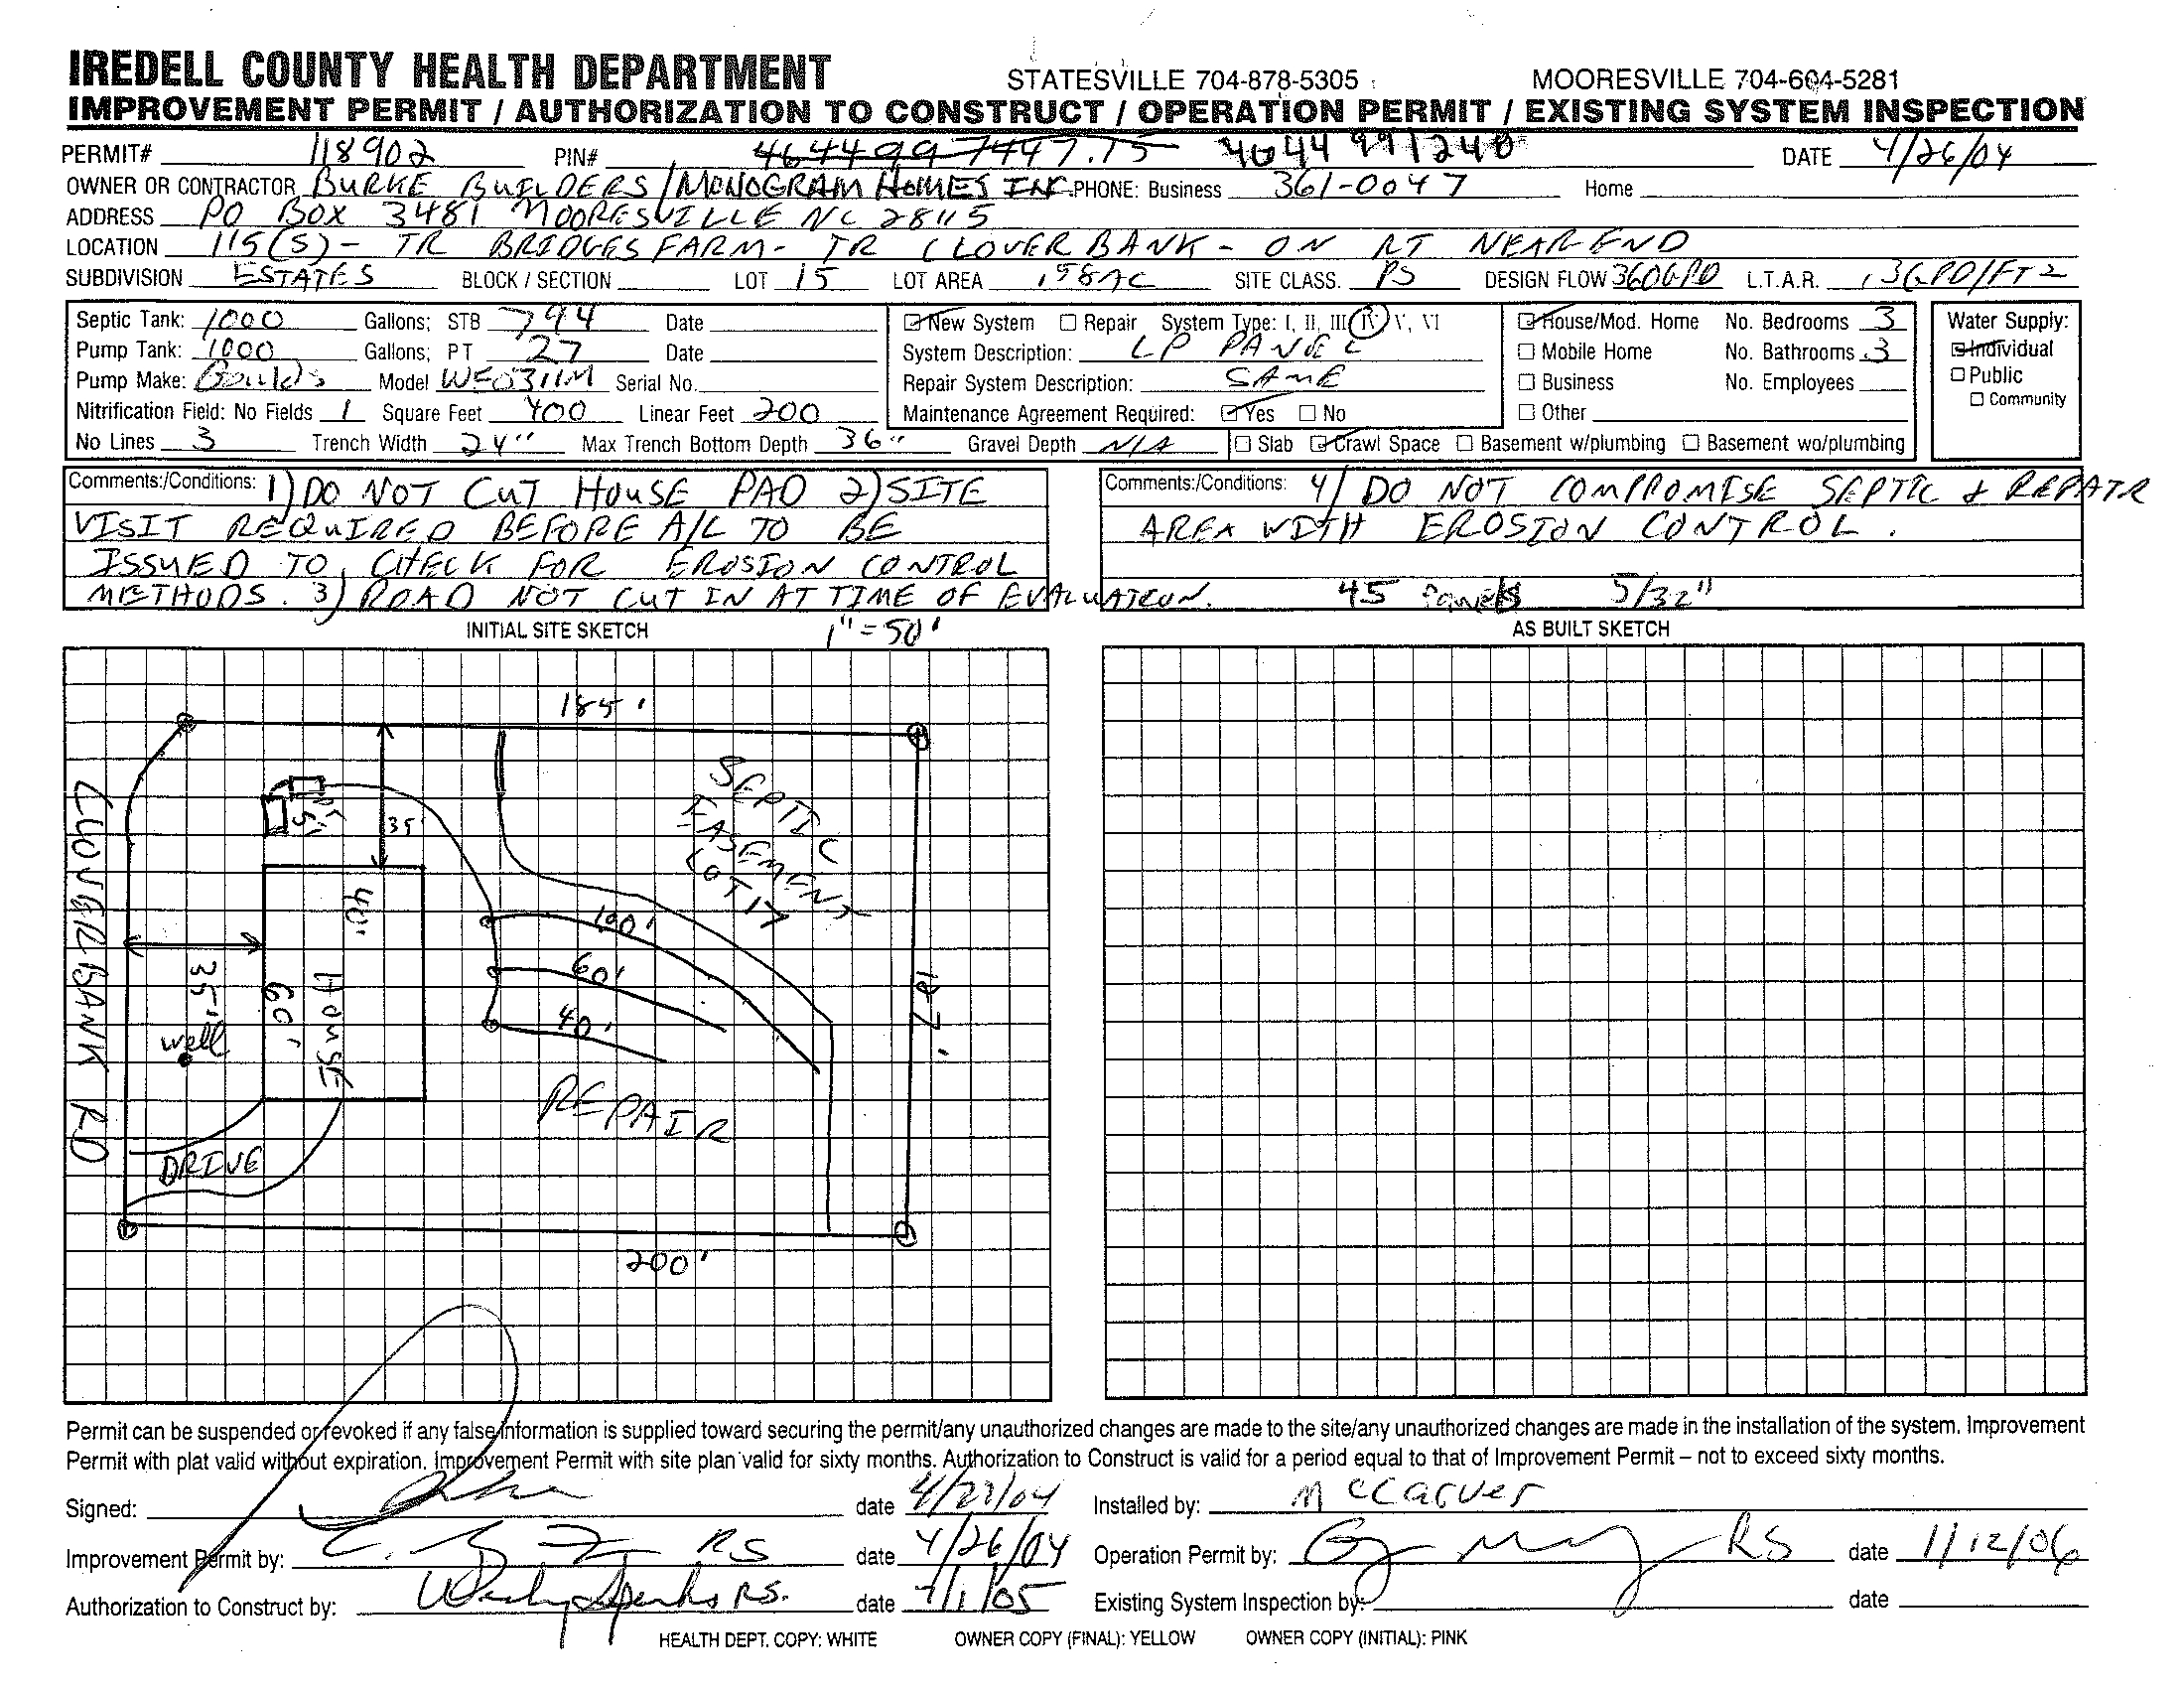 IREDELL COUNTY HEALTH DEPARTMENT STATESVILLE 704-878-5305 MOORESVILLE 704-664-5281
IMPROVEMENT PERMIT / AUTHORIZATION TO CONSTRUCT / OPERATION PERMIT / EXISTING SYSTEM INSPECTION
PERMIT# 118902 PIN# 4644 99 7447.15 4644 991240 DATE 4/26/04
OWNER OR CONTRACTOR BURKE BUILDERS/MONOGRAM HOMES INC. PHONE: Business 361-0047 Home
ADDRESS PO BOX 3481 MOORESVILLE NC 28115
LOCATION 115(S) - TR BRIDGES FARM - TR CLOVERBANK - ON RT NEAR END
SUBDIVISION ESTATES BLOCK / SECTION LOT 15 LOT AREA .58AC SITE CLASS. PS DESIGN FLOW 360GPD L.T.A.R. .3GPD/FT2
Septic Tank: 1000 Gallons; STB 794 Date
Pump Tank: 1000 Gallons; PT 27 Date
Pump Make: Goulds Model WE0311M Serial No.
Nitrification Field: No Fields 1 Square Feet 400 Linear Feet 200
No Lines 3 Trench Width 24" Max Trench Bottom Depth 36" Gravel Depth N/A
New System Repair System Type: I, II, III, IV, V, VI
System Description: LP PANEL
Repair System Description: SAME
Maintenance Agreement Required: Yes No
Slab Crawl Space Basement w/plumbing Basement wo/plumbing
House/Mod. Home No. Bedrooms 3
Mobile Home No. Bathrooms 3
Business No. Employees
Other
Water Supply:
Individual
Public
Community
Comments:/Conditions: 1) DO NOT CUT HOUSE PAD 2) SITE
VISIT REQUIRED BEFORE A/C TO BE
ISSUED TO CHECK FOR EROSION CONTROL
METHODS. 3) ROAD NOT CUT IN AT TIME OF EVALUATION.
Comments:/Conditions: 4) DO NOT COMPROMISE SEPTIC & REPAIR
AREA WITH EROSION CONTROL.
45 Panels 5/32"
INITIAL SITE SKETCH 1"=50'
AS BUILT SKETCH
185'
SEPTIC
EASEMENT
LOT 17
35'
40'
100'
60'
40'
CLOVERBANK RD
35'
60'
HOUSE
well
127'
REPAIR
DRIVE
200'
Permit can be suspended or revoked if any false information is supplied toward securing the permit/any unauthorized changes are made to the site/any unauthorized changes are made in the installation of the system. Improvement
Permit with plat valid without expiration. Improvement Permit with site plan valid for sixty months. Authorization to Construct is valid for a period equal to that of Improvement Permit – not to exceed sixty months.
Signed: date 4/27/04 Installed by: McCarver
Improvement Permit by: RS date 4/26/04 Operation Permit by: RS date 1/12/06
Authorization to Construct by: RS. date 7/1/05 Existing System Inspection by: date
HEALTH DEPT. COPY: WHITE OWNER COPY (FINAL): YELLOW OWNER COPY (INITIAL): PINK